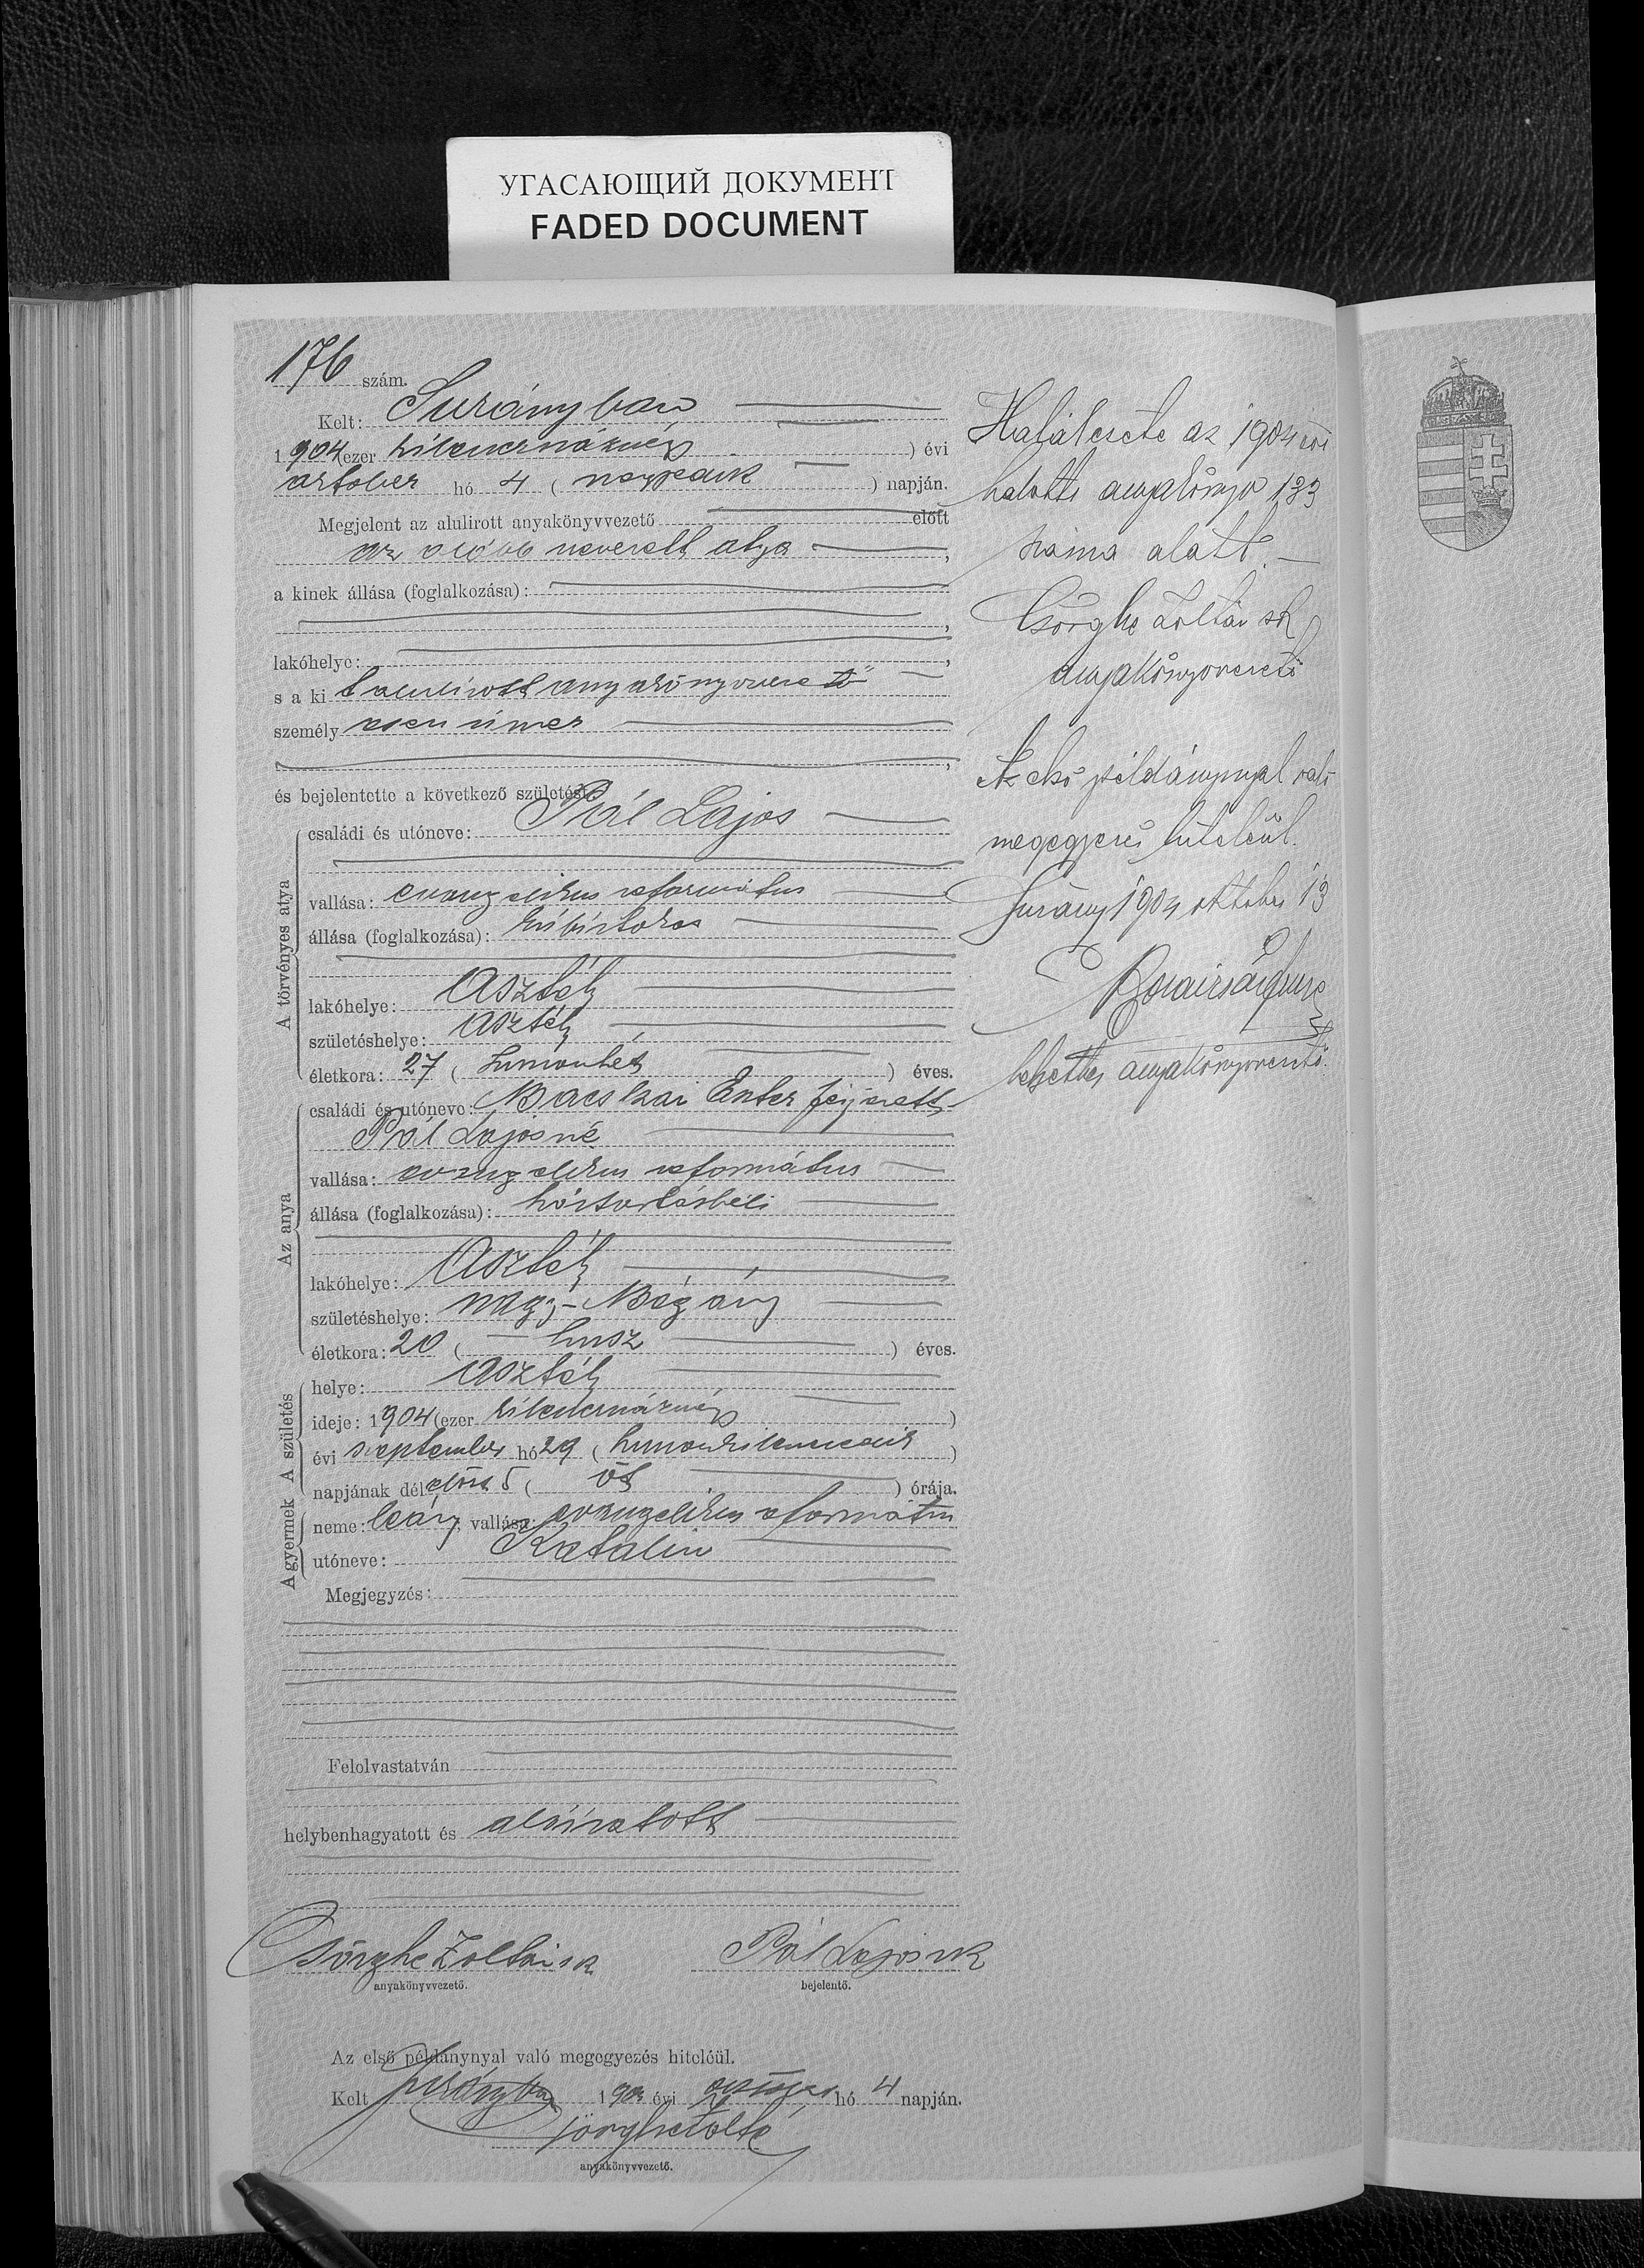 УГАСАЮЩИЙ ДОКУМЕНТ
FADED DOCUMENT
176 szám.
Kelt: Surányban
1904 (ezer kilenczszáznégy ) évi
október hó 4 ( negyedik ) napján.
Megjelent az alulirott anyakönyvvezető előtt
az alább nevezett atya,
a kinek állása (foglalkozása):
lakóhelye:
s a ki t alulírott anyakönyvvezető
személyesen ismer
és bejelentette a következő születést:
A törvényes atya
családi és utóneve: Pál Lajos
vallása: evangelikus református
állása (foglalkozása): kisbirtokos
lakóhelye: Asztély
születéshelye: Asztély
életkora: 27 ( huszonhét ) éves.
Az anya
családi és utóneve: Bacskai Eszter férjezett
Pál Lajosné
vallása: evangelikus református
állása (foglalkozása): háztartásbeli
lakóhelye: Asztély
születéshelye: Nagy-Bégány
életkora: 20 ( húsz ) éves.
A születés
helye: Asztély
ideje: 1904 (ezer kilenczszáznégy )
évi szeptember hó 29 ( huszonkilenczedik )
napjának délelőtt 5 ( öt ) órája.
A gyermek
neme: leány, vallása: evangelikus református
utóneve: Katalin
Megjegyzés:
Felolvastatván
helybenhagyatott és aláíratott
Csörghe Zoltán sk Pál Lajos sk
anyakönyvvezető. bejelentő.
Az első példánynyal való megegyezés hiteléül.
Kelt Surányban 1904 évi október hó 4 napján.
Csörghe Zoltán
anyakönyvvezető.
Halálesete az 1904 évi
halotti anyakönyv 133
száma alatt. –
Csörghe Zoltán sk
anyakönyvvezető
Az első példánynyal való
megegyezés hiteléül.
Surány 1904 október 13
helyettes anyakönyvvezető.